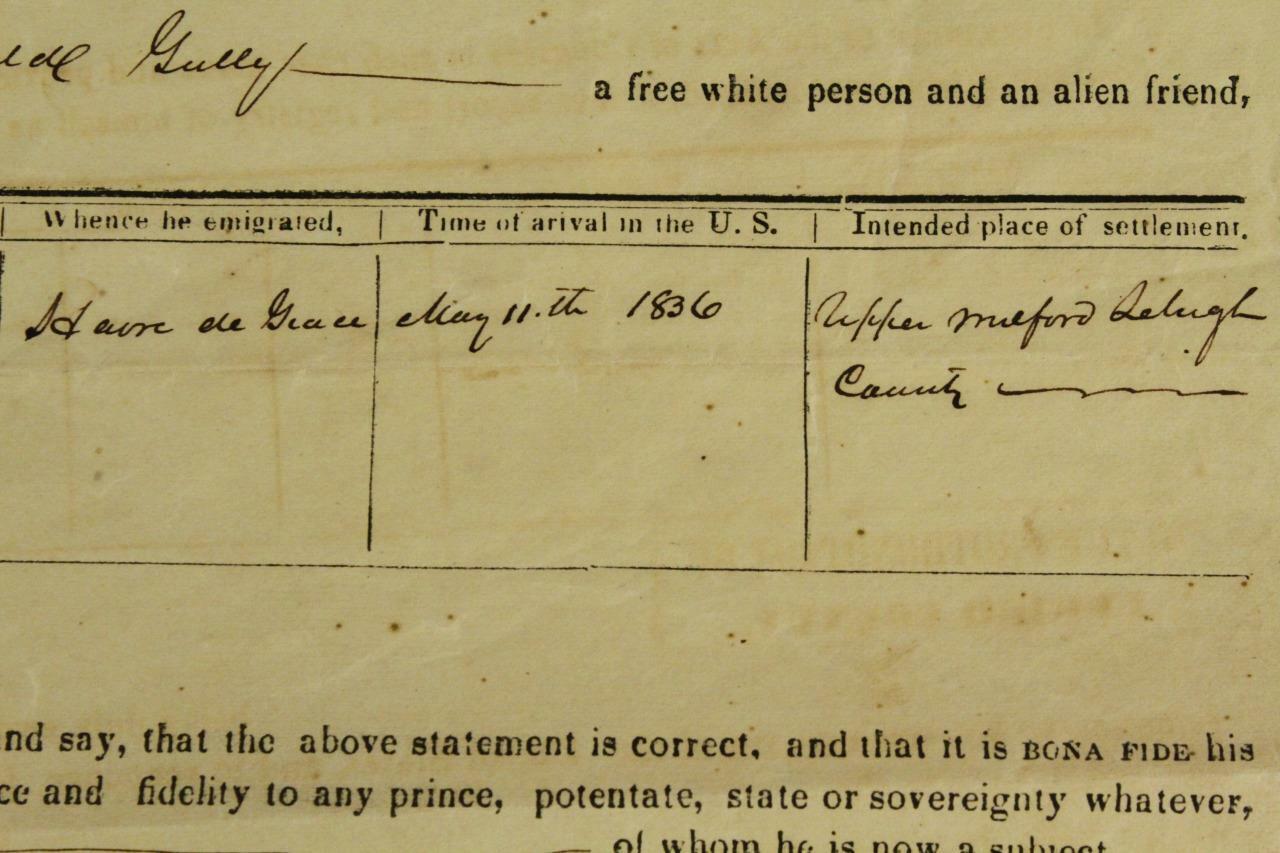 Gully a free white person and an alien friend,
Whence he emigrated, | Time of arival in the U. S. | Intended place of settlement.
Havre de Grace May 11.th 1836 Upper Milford Lehigh
County
nd say, that the above statement is correct, and that it is BONA FIDE his
ce and fidelity to any prince, potentate, state or sovereignty whatever,
of whom he is now a subject